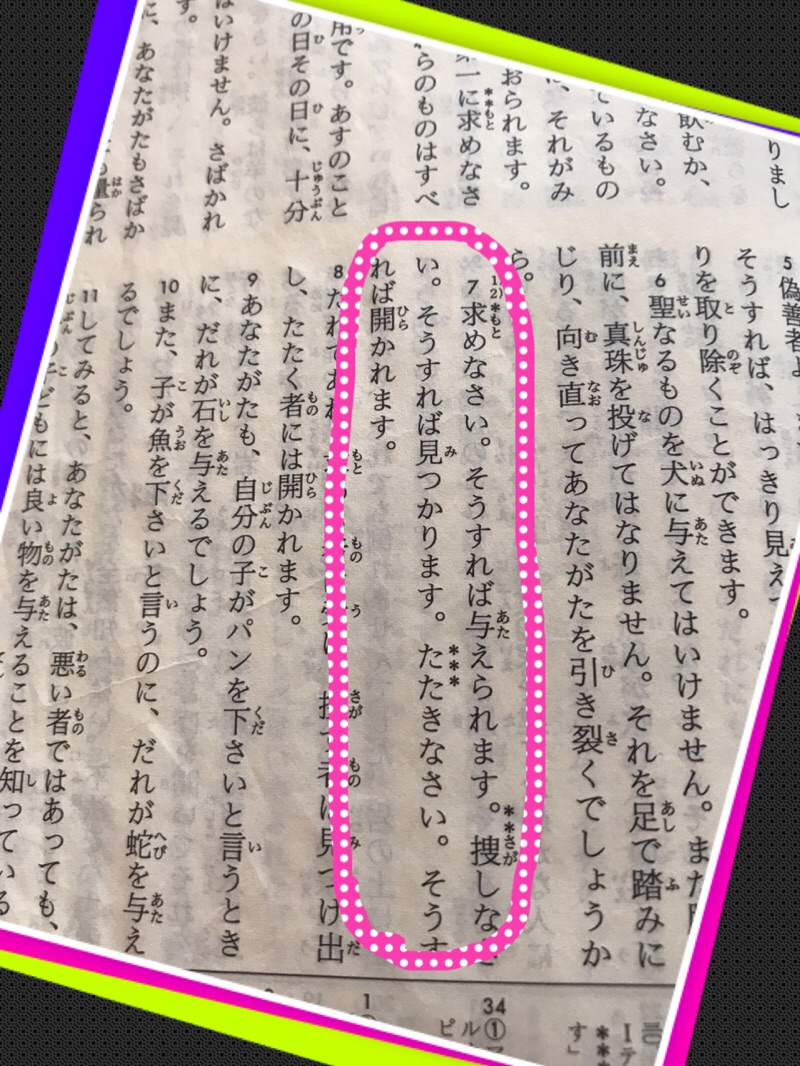 りまし
飲むか、
なさい。
ているもの
、それがみ
おられます。
一に求めなさ
らのものはすべ
用です。あすのこと
の日その日に、十分
はいけません。さばかれ
す。
に、あなたがたもさばか
量られ
5 偽善者よ
そうすれば、はっきり見え
りを取り除くことができます。
6 聖なるものを犬に与えてはいけません。また
前に、真珠を投げてはなりません。それを足で踏みに
じり、向き直ってあなたがたを引き裂くでしょうか
ら。
7 求めなさい。そうすれば与えられます。捜しなさ
い。そうすれば見つかります。たたきなさい。そうす
れば開かれます。
8 見つけ出
し、たたく者には開かれます。
9 あなたがたも、自分の子がパンを下さいと言うとき
に、だれが石を与えるでしょう。
10 また、子が魚を下さいと言うのに、だれが蛇を与え
るでしょう。
11 してみると、あなたがたは、悪い者ではあっても、
どもには良い物を与えることを知っている
34①